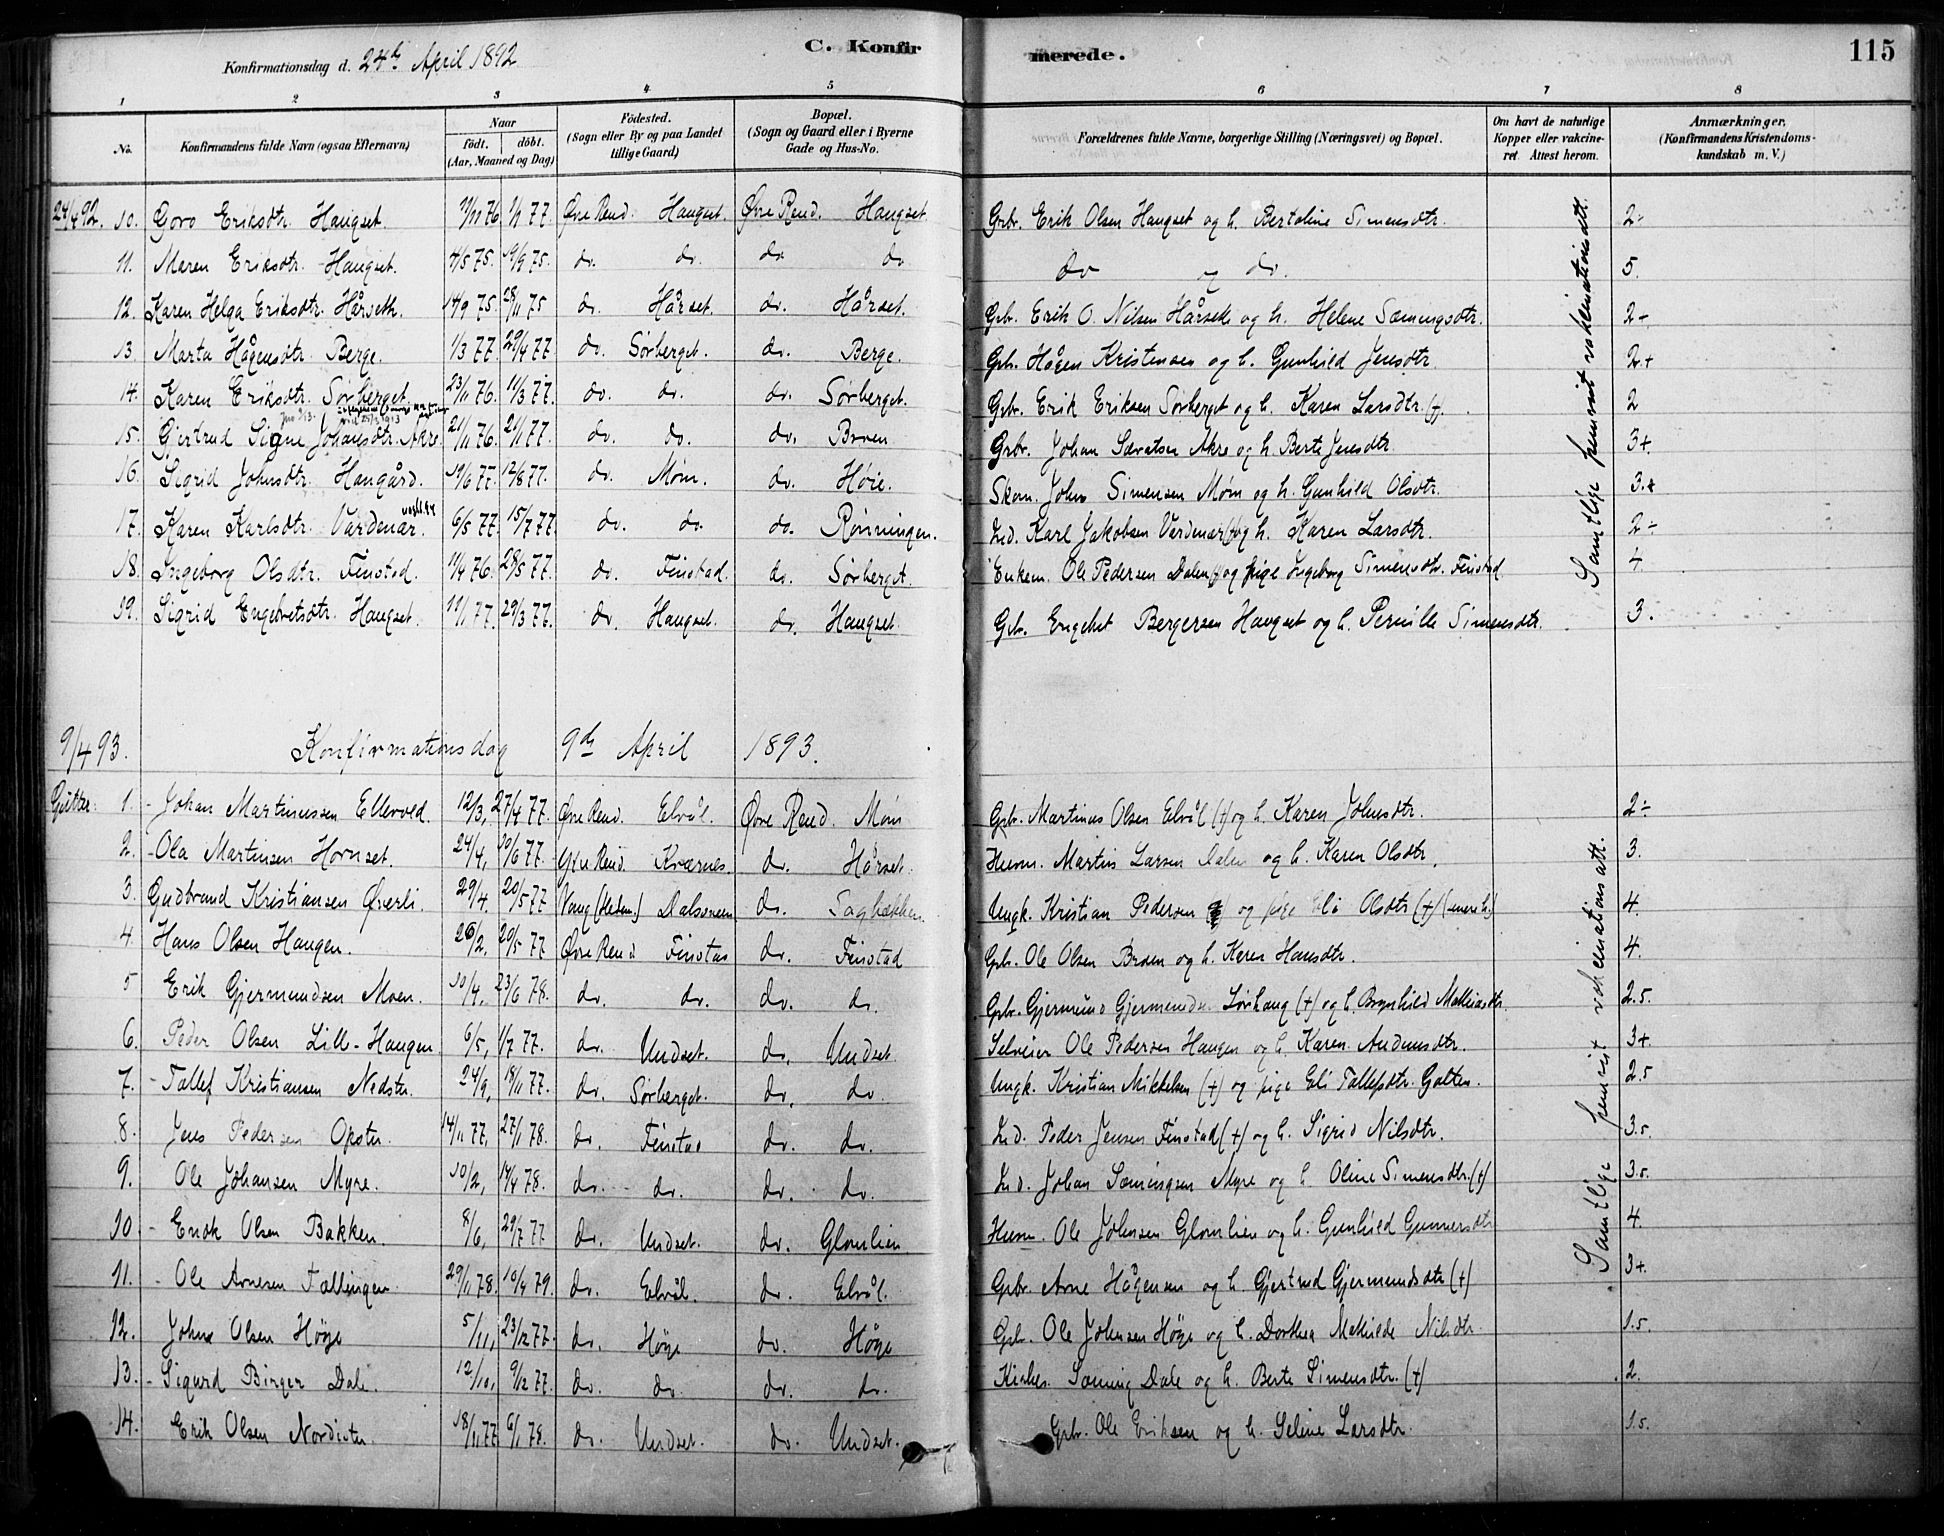 Konfirmationsdag d. 24de April 1892 C. Konfirmerede. 115
1 2 3 4 5 6 7 8
No. Konfirmandens fulde Navn (ogsaa Efternavn) Naar födt. döbt. (Aar, Maaned og Dag) Födested. (Sogn eller By og paa Landet tillige Gaard) Bopæl. (Sogn og Gaard eller i Byerne Gade og Hus-No. Forældrenes fulde Navne, borgerlige Stilling (Næringsvei) og Bopæl. Om havt de naturlige Kopper eller vakcineret. Attest herom. Anmærkninger, (Konfirmandens Kristendomskundskab m. V.)
24/4 92. 10. Goro Eriksdtr. Haugset. 11/11 76 1/1 77. Øvre Rend. Haugset. Øvre Rend. Haugset Grbr. Erik Olsen Haugset og h. Bertoline Simensdtr. 2-
11. Maren Eriksdtr. Haugset. 4/5 75. 19/9 75. do. do. do do do og do. 5.
12. Karen Helga Eriksdtr. Hårseth. 14/9 75. 28/11 75 do. Hårset. do. Hårset. Gbr. Erik O. Nilsen Hårseth og h. Helene Sæmingsdtr. 2-
13. Marta Hågensdtr. Berge. 1/3 77. 29/4 77 do. Sørberget. do. Berge. Gbr. Hågen Kristensen og h. Gunhild Jensdtr. 2+
14. Karen Eriksdtr. Sørberget. 23/11 76. 11/3 77. do. do. do. Sørberget. Gbr. Erik Eriksen Sørberget og h. Karen Larsdtr. (+). 2
15. Gjertrud Signe Johansdtr. Akre. 21/11 76. 21/1 77. do. do. do. Broen. Grbr. Johan Sæveratsen Akre og h. Berte Jensdtr. 3+
16. Sigrid Johnsdtr. Haugård. 19/6 77. 12/8 77. do. Møm. do. Høie. Skom. John Simensen Møm og h. Gunhild Olsdtr. 3.+
17. Karen Karlsdtr. Vårdenær. 6/5 77. 15/7 77. do. do. do. Rønningen. Ind. Karl Jakobsen Vardenær (+) og h. Karen Larsdtr. 2-
18. Ingeborg Olsdtr. Finstad. 11/4 76. 28/5 77. do. Finstad. do. Sørberget. Enkem. Ole Pedersen Dalen (+) og pige Ingeborg Simensdtr. Finstad 4.
19. Sigrid Engebretsdtr. Haugset. 11/1 77. 29/3 77. do. Haugset. do. Haugset. Gbr. Engebret Bergersen Haugset og h. Pernille Simensdtr. 3.
Samtlige fremvist vakcinationsatt.
9/4 93. Konfirmationsdag 9de April 1893.
Gutter. 1. Johan Martinussen Ellevold. 12/3, 27/4 77. Øvre Rend. Elvål. Øvre Rend. Møm Gbr. Martinus Olsen Elvål (+) og h. Karen Johnsdtr. 2-
2. Ola Martinsen Hornset. 24/4, 30/6 77. Ytre Rend. Kværnes. do. Hårset. Husm. Martin Larsen Dalen og h. Karen Olsdtr. 3.
3. Gudbrand Kristiansen Øverli. 29/4. 20/5 77 Vang (Hedem.) Dalsveen do. Sagbækken. Ungk. Kristian Pedersen og pige Eli Olsdtr (+) 4.
4. Hans Olsen Haugen. 26/2. 29/5 77 Øvre Rend Finstad do. Finstad Gbr. Ole Olsen Broen og h. Karen Hansdtr. 4.
5 Erik Gjermundsen Moen. 30/4, 23/6 78. do. do. do. do. Gbr. Gjermund Gjermunds. Sørhaug (+) og h. Brynhild Mathiasdtr. 2.5.
6. Peder Olsen Lille-Haugen. 6/5, 1/7 77. do. Undset. do. Undset. Selveier Ole Pedersen Haugen og h. Karen Amundsdtr. 3+
7. Tallef Kristiansen Nedstu. 24/9, 18/11 77. do. Sørberget. do. do. Ungk. Kristian Mikkelsen (+) og pige Eli Tallefsdtr. Galten. 2.5
8. Jens Pedersen Opstu. 14/11 77, 27/1 78. do. Finstad do. do. Ind. Peder Jensen Finstad (+) og h. Sigrid Nilsdtr. 3.5.
9. Ole Johansen Myre. 10/2, 14/4 78. do. do. do. do. Ind. Johan Sæmingsen Myre og h. Oline Simensdtr. (+) 3.5.
10 Endr. Olsen Bakken. 8/6, 29/7 77 do. Undset. do. Glomlien Husm. Ole Johnsen Glomlien og h. Gunhild Gunnersdtr 4.
11. Ole Arnesen Tallingen. 29/11 78. 10/4 79. do. Elvål. do. Elvål. Gbr. Arne Hågensen og h. Gjertrud Gjermundsdtr (+) 3+.
12. John Olsen Høye 5/11, 23/12 77. do. Høye do. Høye Gbr. Ole Johnsen Høye og h. Dorthea Mathilde Nilsdtr. 1.5.
13. Sigurd Birger Dale. 12/10, 9/12 77. do. do. do. do. Kirkes. Sæming Dale og h. Berte Simensdtr. (+) 2.
14. Erik Olsen Nordistu. 18/11 77 6/1 78. do. Undset. do. Undset. Gbr. Ole Eriksen og h. Seline Larsdtr. 1.5.
Samtlige fremvist vakcinationsatt.